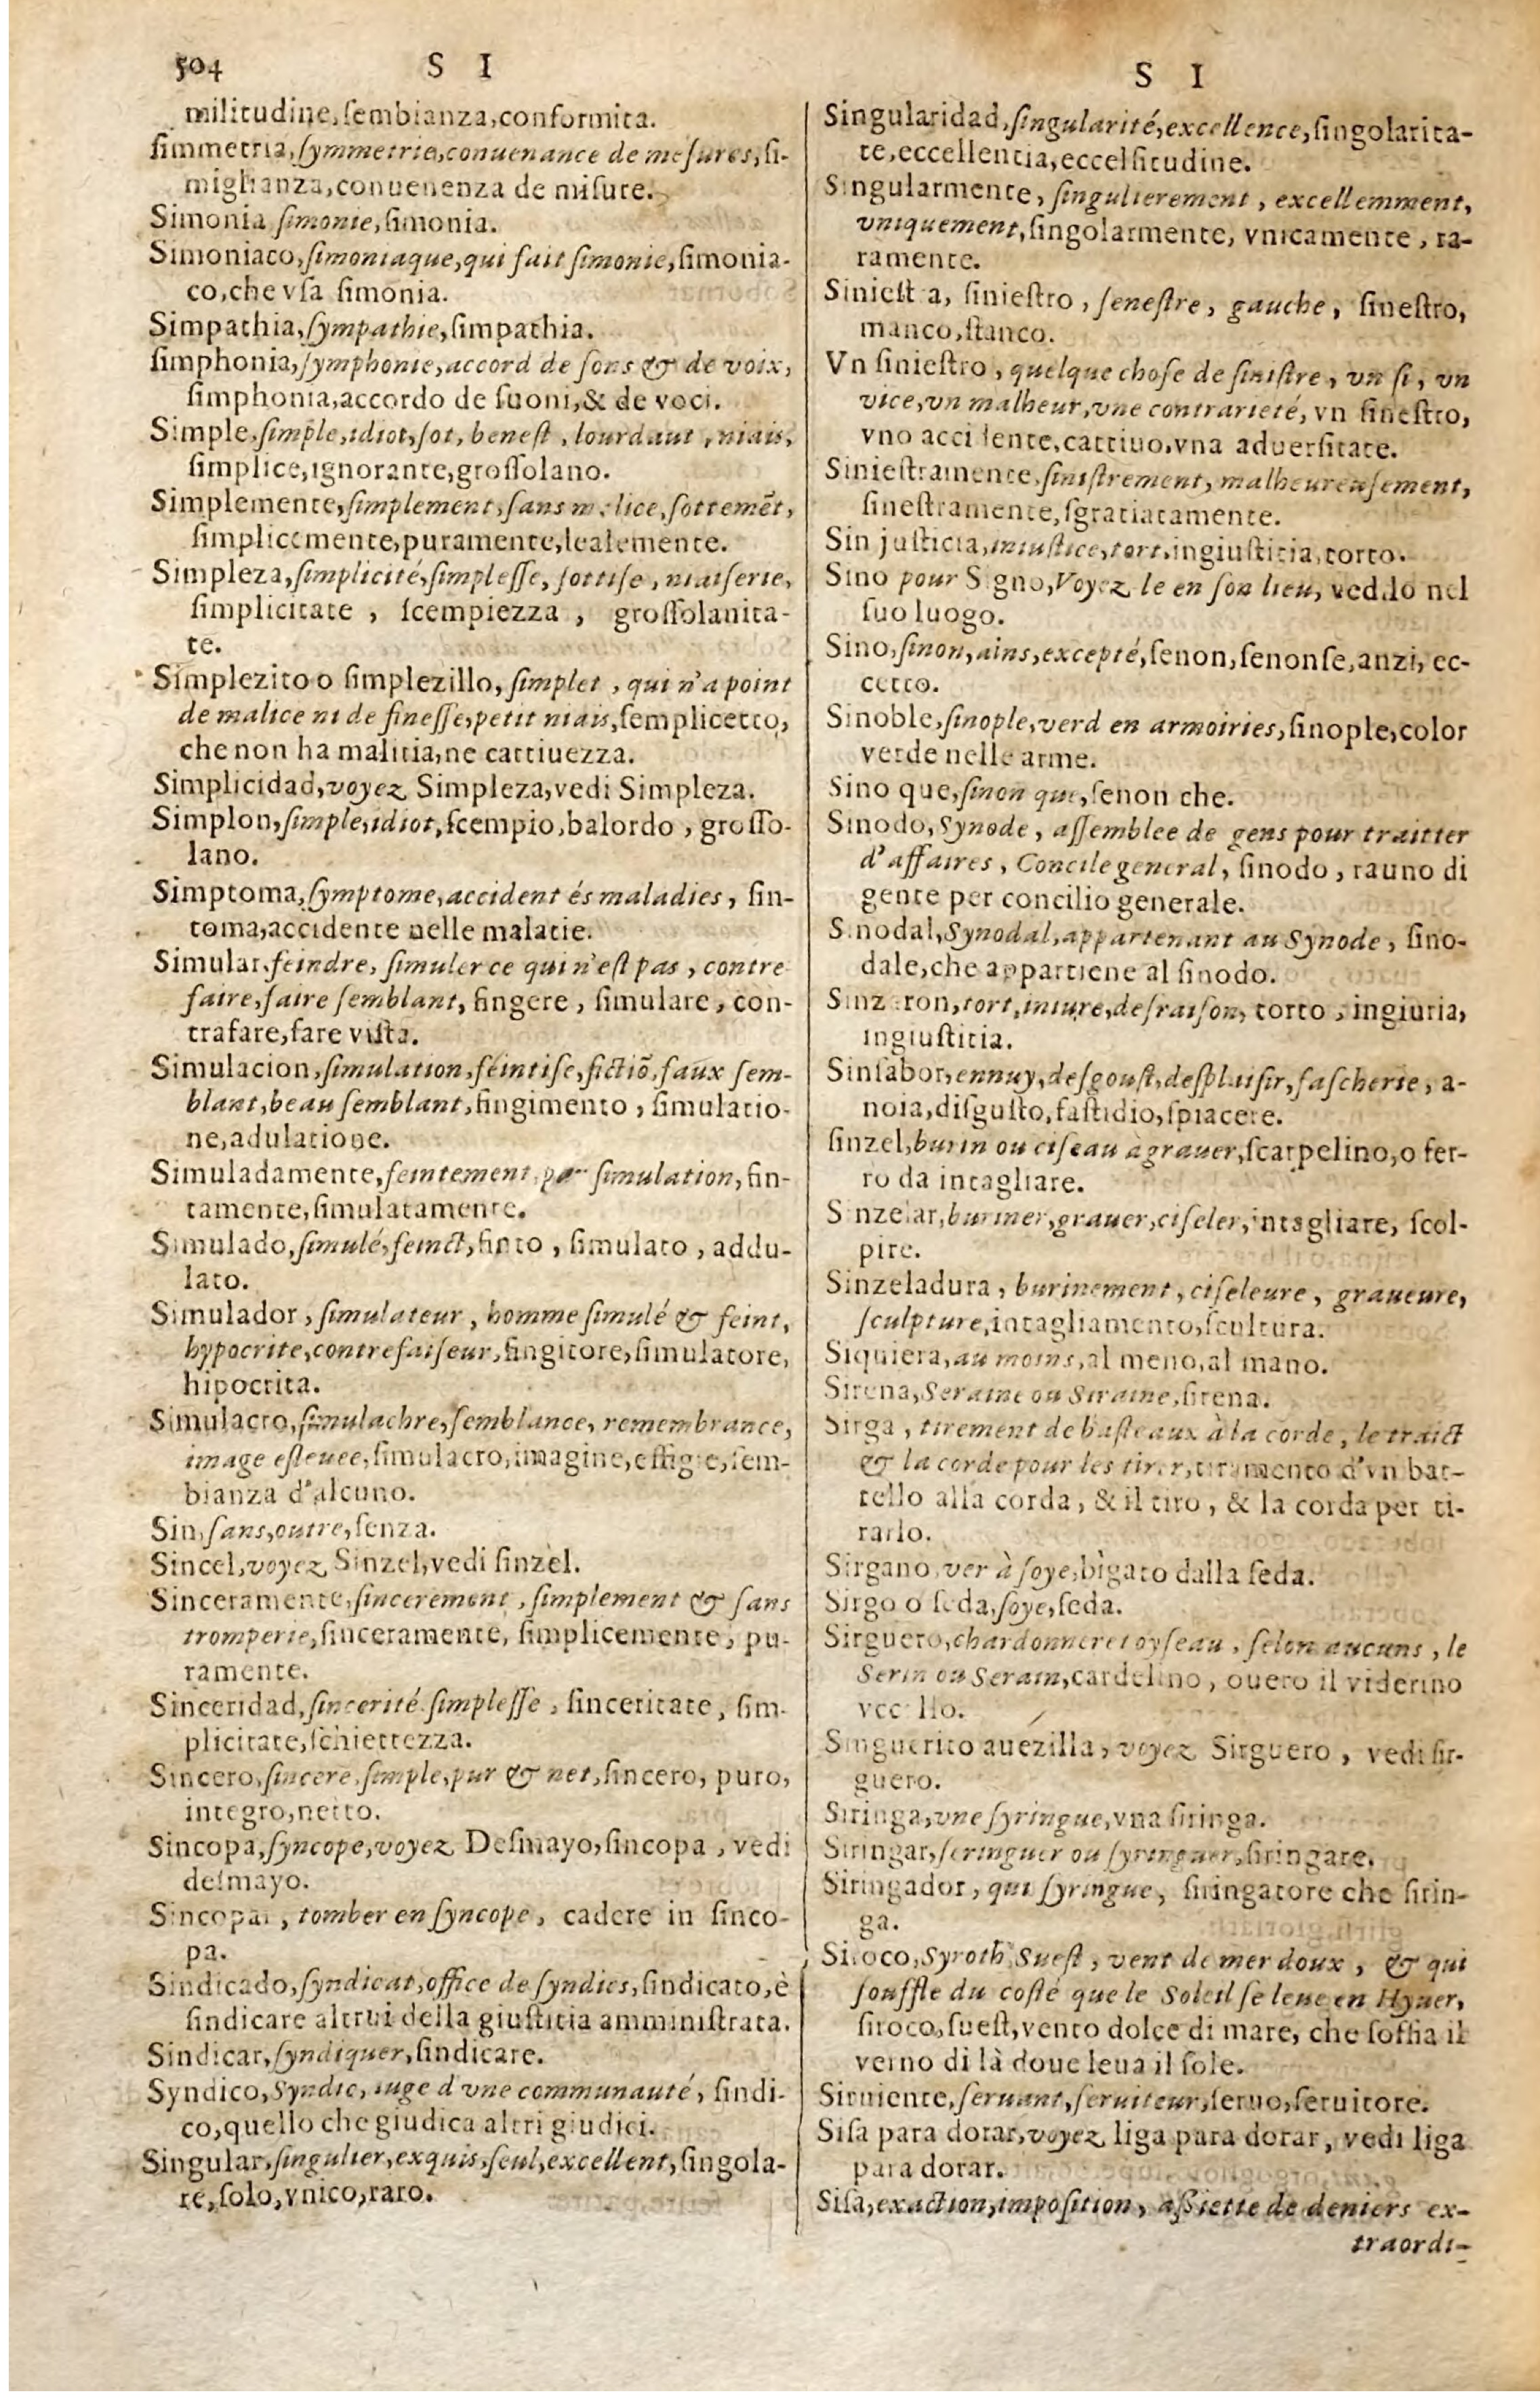 504 S I
militudine,ſembianza,conformita.
ſimmetria,ſymmetrie,conuenance de meſures,ſi-
miglianza,conuenenza de miſure.
Simonia ſimonie,ſimonia.
Simoniaco,ſimoniaque,qui fait ſimonie,ſimonia-
co,che vſa ſimonia.
Simpathia,ſympathie,ſimpathia.
ſimphonia,ſymphonie,accord de ſons & de voix,
ſimphonia,accordo de ſuoni,& de voci.
Simple,ſimple,idiot,ſot, beneſt, lourdaut, niais,
ſimplice,ignorante,groſſolano.
Simplemente,ſimplement,ſans malice,ſottemẽt,
ſimplicemente,puramente,lealemente.
Simpleza,ſimplicité,ſimpleſſe, ſottiſe, niaiſerie,
ſimplicitate, ſcempiezza, groſſolanita-
te.
Simplezito o ſimplezillo, ſimplet, qui n'a point
de malice ni de fineſſe,petit niais,ſemplicetto,
che non ha malitia,ne cattiuezza.
Simplicidad,voyez Simpleza,vedi Simpleza.
Simplon,ſimple,idiot,ſcempio,balordo, groſſo-
lano.
Simptoma,ſymptome,accident és maladies, ſin-
toma,accidente nelle malatie.
Simular,feindre, ſimuler ce qui n'eſt pas, contre
faire,faire ſemblant, fingere, ſimulare, con-
trafare,fare viſta.
Simulacion,ſimulation,feintiſe,fictiõ,faux ſem-
blant,beau ſemblant,fingimento, ſimulatio-
ne,adulatione.
Simuladamente,feintement,par ſimulation,fin-
tamente,ſimulatamente.
Simulado,ſimulé,feinct,finto, ſimulato, addu-
lato.
Simulador, ſimulateur, homme ſimulé & feint,
hypocrite,contrefaiſeur,fingitore,ſimulatore,
hipocrita.
Simulacro,ſimulachre,ſemblance, remembrance,
image eſleuee,ſimulacro,imagine,effigie,ſem-
bianza d'alcuno.
Sin,ſans,outre,ſenza.
Sincel,voyez Sinzel,vedi ſinzel.
Sinceramente,ſincerement, ſimplement & ſans
tromperie,ſinceramente, ſimplicemente, pu-
ramente.
Sinceridad,ſincerité ſimpleſſe, ſinceritate, ſim-
plicitate,ſchiettezza.
Sincero,ſincere,ſimple,pur & net,ſincero, puro,
integro,netto.
Sincopa,ſyncope,voyez Deſmayo,ſincopa, vedi
deſmayo.
Sincopar, tomber en ſyncope, cadere in ſinco-
pa.
Sindicado,ſyndicat,office de ſyndics,ſindicato,è
ſindicare altrui della giuſtitia amminiſtrata.
Sindicar,ſyndiquer,ſindicare.
Syndico,Syndic, iuge d'vne communauté, ſindi-
co,quello che giudica altri giudici.
Singular,ſingulier,exquis,ſeul,excellent,ſingola-
re,ſolo,vnico,raro.
S I
Singularidad,ſingularité,excellence,ſingolarita-
te,eccellentia,eccelſitudine.
Singularmente, ſingulierement, excellemment,
vniquement,ſingolarmente, vnicamente, ra-
ramente.
Sinieſt a, ſinieſtro, ſeneſtre, gauche, ſineſtro,
manco,ſtanco.
Vn ſinieſtro, quelque choſe de ſiniſtre, vn ſi, vn
vice,vn malheur,vne contrarieté, vn ſineſtro,
vno accidente,cattiuo,vna aduerſitate.
Sinieſtramente,ſiniſtrement, malheureuſement,
ſineſtramente,ſgratiatamente.
Sin juſticia,iniuſtice,tort,ingiuſtitia,torto.
Sino pour Signo,Voyez le en ſon lieu, vedilo nel
ſuo luogo.
Sino,ſinon,ains,excepté,ſenon,ſenonſe,anzi, ec-
cetto.
Sinoble,ſinople,verd en armoiries,ſinople,color
verde nelle arme.
Sino que,ſinon que,ſenon che.
Sinodo,Synode, aſſemblee de gens pour traitter
d'affaires, Concile general, ſinodo, rauno di
gente per concilio generale.
Sinodal,Synodal,appartenant au Synode, ſino-
dale,che appartiene al ſinodo.
Sinzaron,tort,iniure,deſraiſon, torto, ingiuria,
ingiuſtitia.
Sinſabor,ennuy,deſgouſt,deſplaiſir,faſcherie, a-
noia,diſguſto,faſtidio,ſpiacere.
ſinzel,burin ou ciſeau à grauer,ſcarpelino,o fer-
ro da intagliare.
Sinzelar,buriner,grauer,ciſeler,intagliare, ſcol-
pire.
Sinzeladura, burinement, ciſeleure, graueure,
ſculpture,intagliamento,ſcultura.
Siquiera,au moins,al meno,al mano.
Sirena,Seraine ou Siraine,ſirena.
Sirga, tirement de baſteaux à la corde, le traict
& la corde pour les tirer,tiramento d'vn bat-
tello alla corda, & il tiro, & la corda per ti-
rarlo.
Sirgano,ver à ſoye,bìgato dalla ſeda.
Sirgo o ſeda,ſoye,ſeda.
Sirguero,chardonneret oyſeau, ſelon aucuns, le
Serin ou Serain,cardelino, ouero il viderino
vccello.
Singuerito auezilla, voyez Sirguero, vedi ſir-
guero.
Siringa,vne ſyringue,vna ſiringa.
Siringar,ſeringuer ou ſyringuer,ſiringare.
Siringador, qui ſyringue, ſiringatore che ſirin-
ga.
Siroco,Syroth,Sueſt, vent de mer doux, & qui
ſouffle du coſté que le Soleil ſe leue en Hyuer,
ſiroco,ſueſt,vento dolce di mare, che ſoffia il
verno di là doue leua il ſole.
Siruiente,ſeruant,ſeruiteur,ſeruo,ſeruitore.
Siſa para dorar,voyez liga para dorar, vedi liga
para dorar.
Siſa,exaction,impoſition, aſſiette de deniers ex-
traordi-